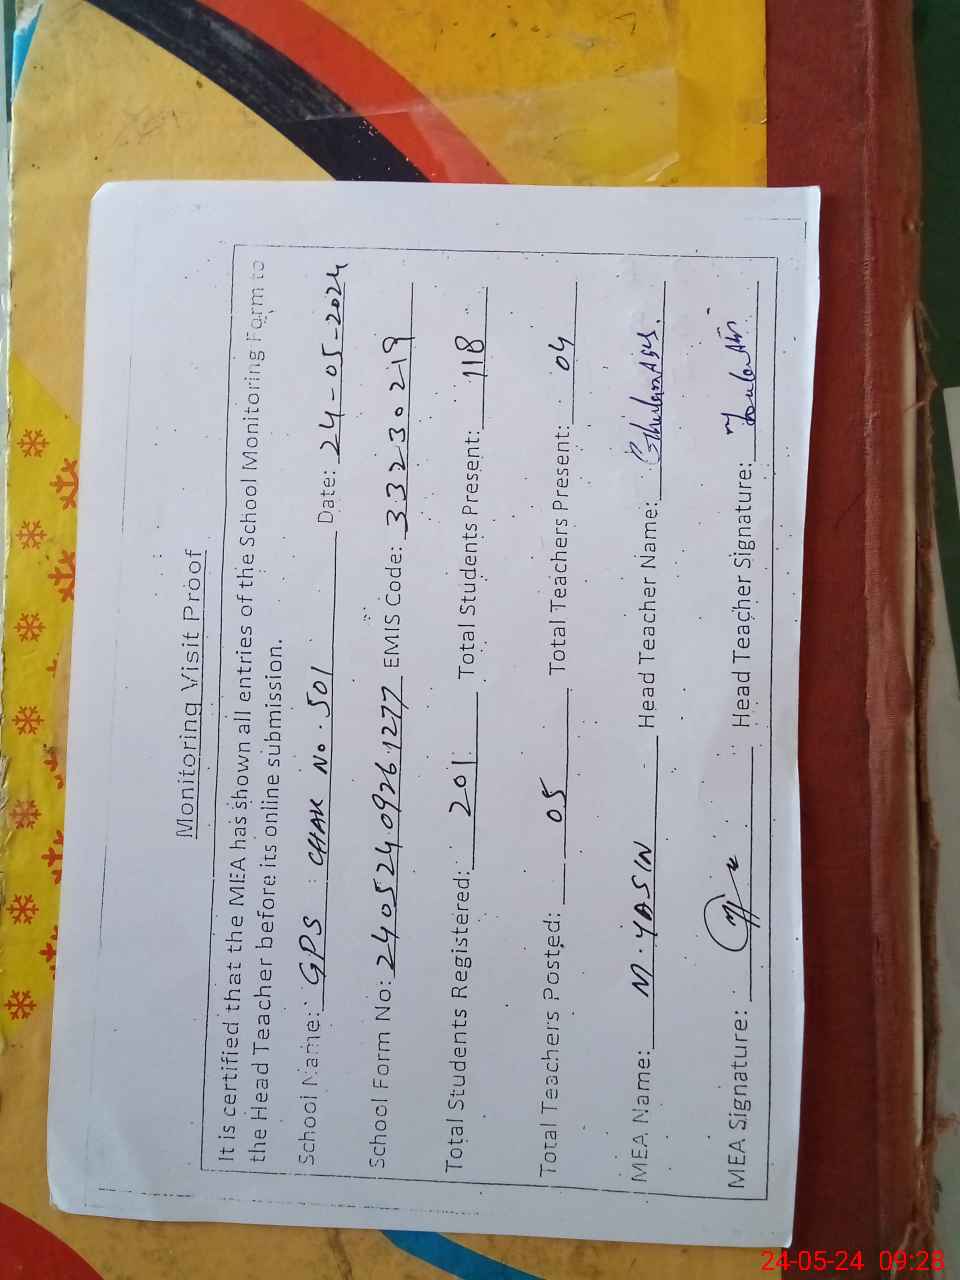 Monitoring Visit Proof
It is certified that the MEA has shown all entries of the School Monitoring Form to
the Head Teacher before its online submission.
School Name: GPS CHAK No. 501 Date: 24-05-2024
School Form No: 24052409261277 EMIS Code: 33230219
Total Students Registered: 201 Total Students Present: 118
Total Teachers Posted: 05 Total Teachers Present: 04
MEA Name: M. YASIN Head Teacher Name: Ghulam
MEA Signature: Head Teacher Signature:
24-05-24 09:28